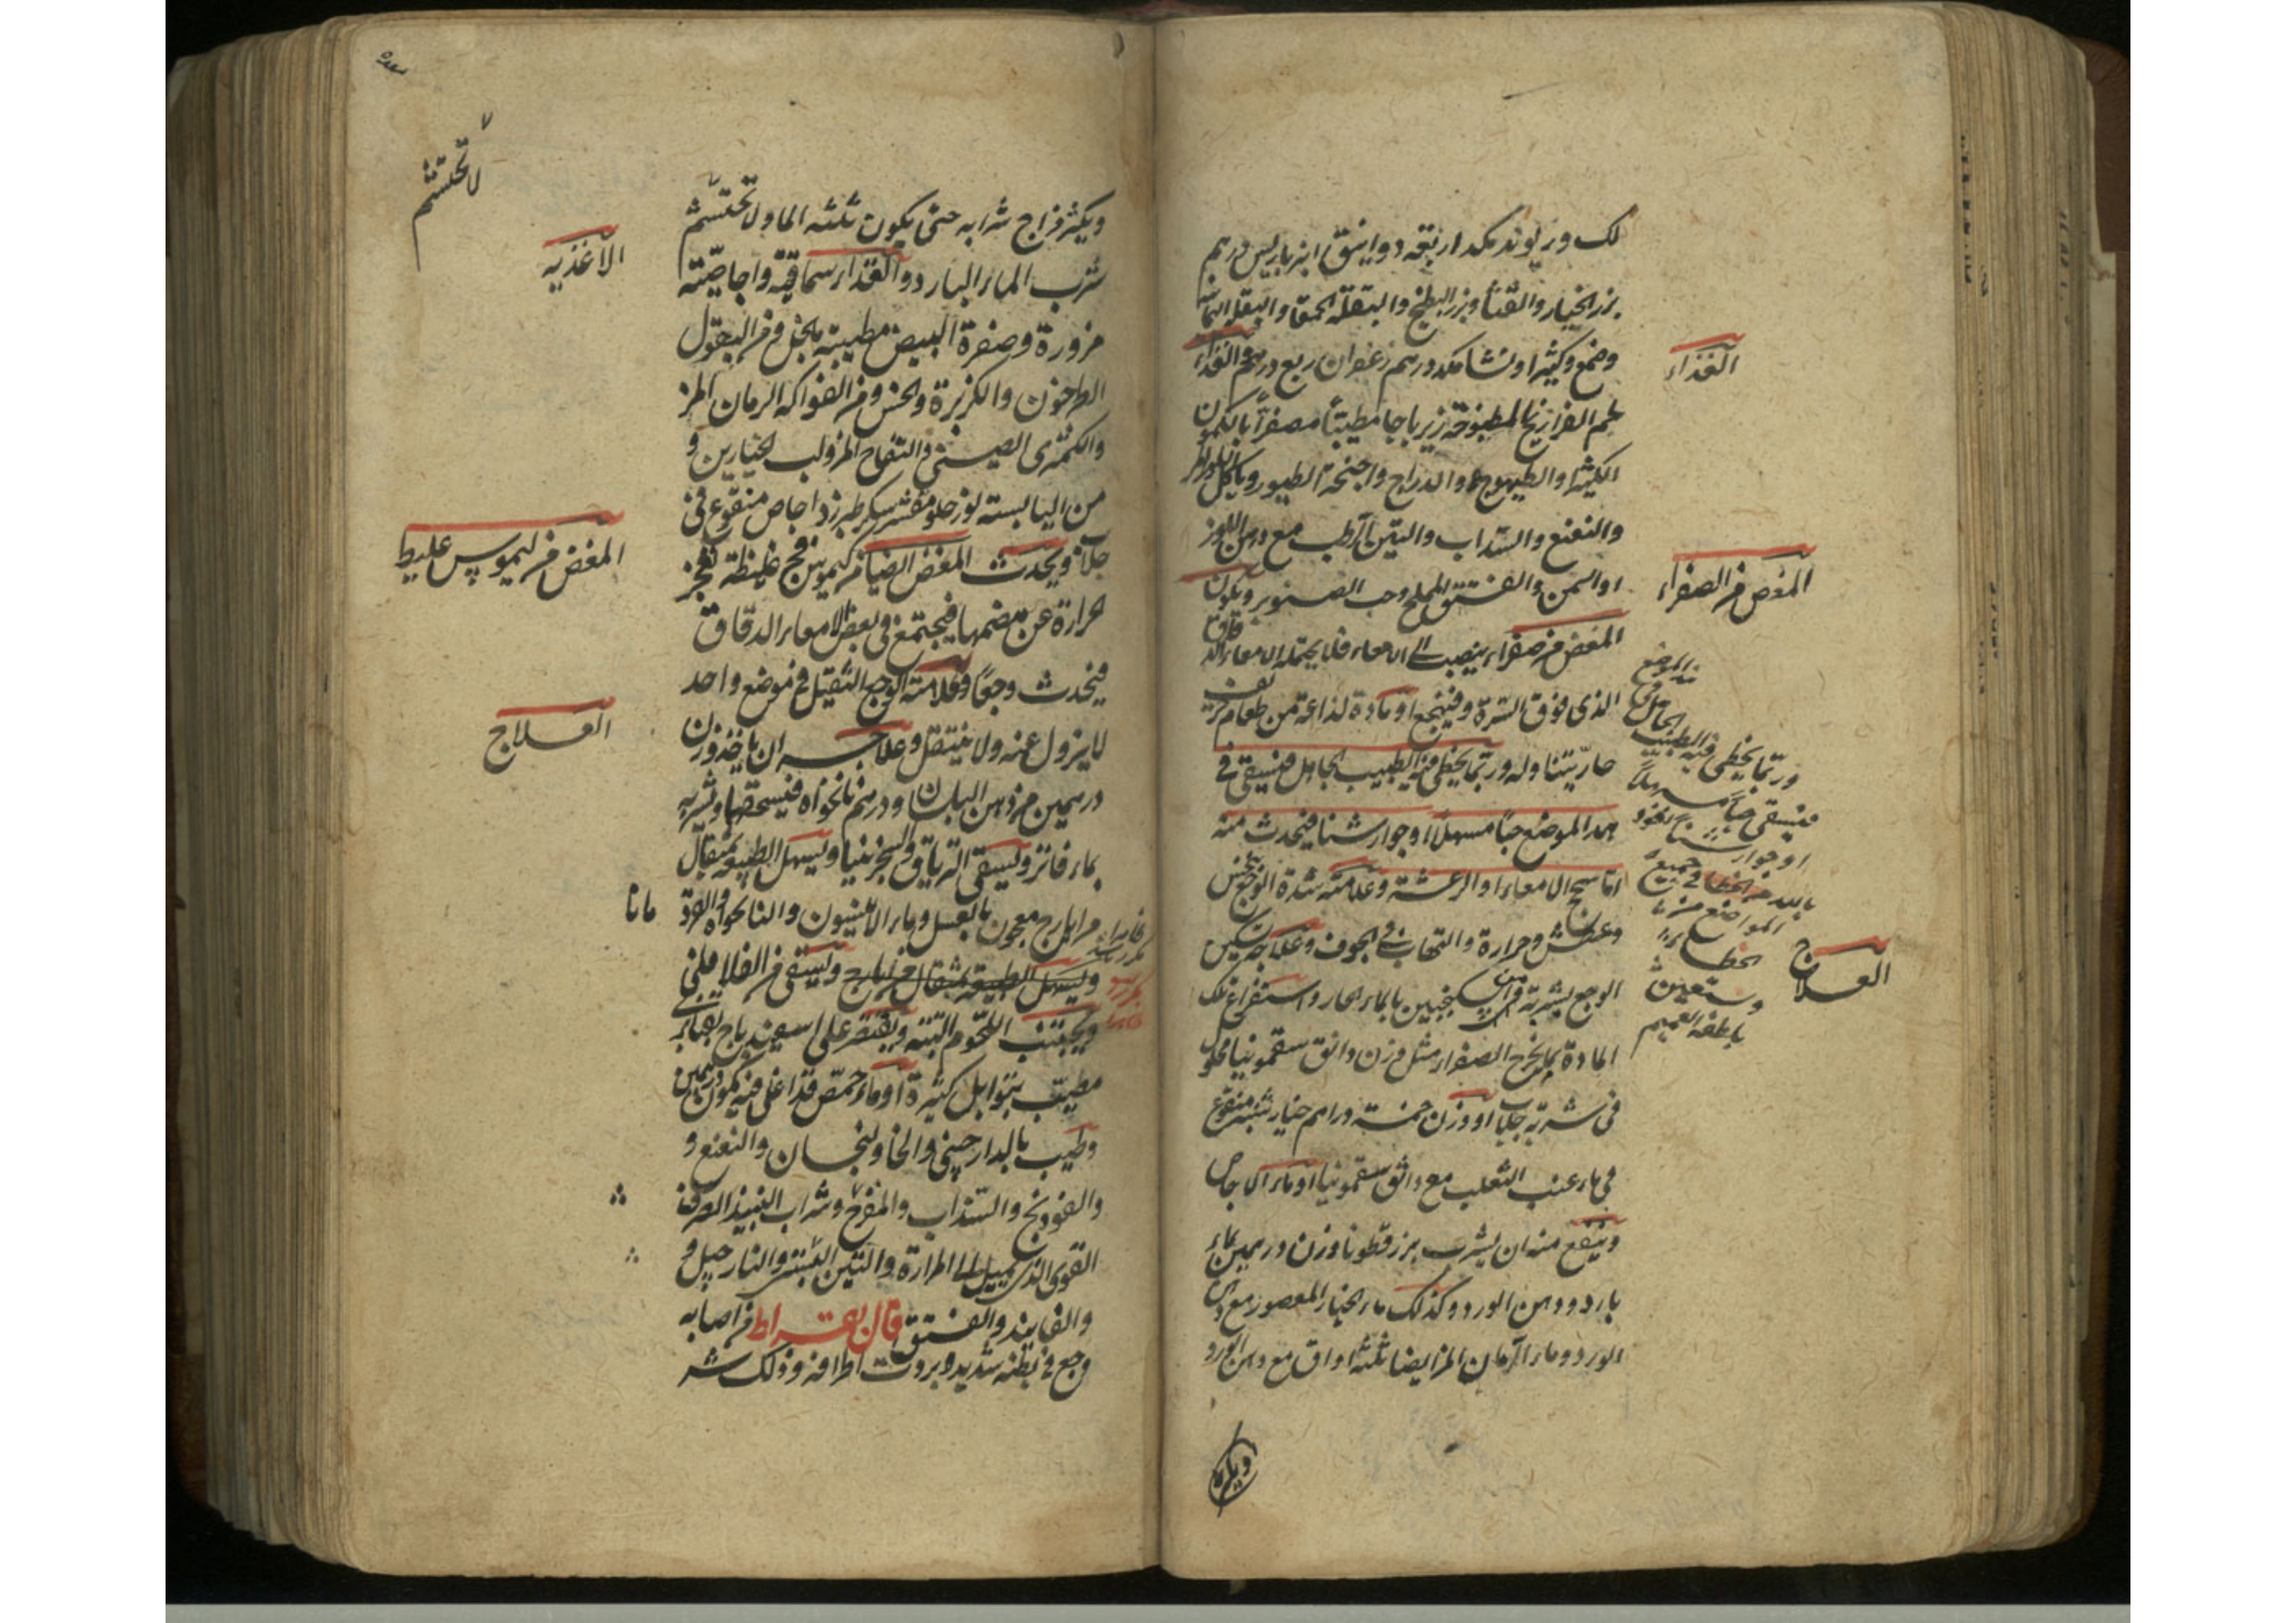 لك وريوند مكد اربعة دوانيق انبرباريس درهم
بزر الخيار والقثا وبزر البطيخ والبقلة الحمقا والبقلة اليمانية
وصمغ وكثيرا ونشا مكد درهم زعفران ربع درهم والغذاء
الغذاء
لحم الفراريج المطبوخة زيرباجا مطيبا مصفرا بالكمون
الكثير والطيهوج والدراج واجنحة الطيور وياكل
والنعنع والسذاب والتين الرطب مع دهن اللوز
او السمن والفستق المملح وحب الصنوبر ويكون
المغص من الصفراء
المغص من صفراء ينصب الى الامعاء فلا يحتمله الامعاء الدقاق
الذي فوق السرة وفينجع او مادة لذاعة من طعام حريف
حار يتناوله وربما يخطى فيه الطبيب الجاهل فيسقى في
هذا الموضع حبا مسهلا او جوارشنا فيحدث منه
اما سحج الامعاء او الرعشة وعلامته شدة الوجع
وعطش وحرارة والتهاب في الجوف وعلاجه تسكين
العلاج
الوجع بشربة من سكنجبين بالماء الحار واستفراغ تلك
المادة بما يخرج الصفراء مثل وزن دانق سقمونيا محلول
في شربة جلاب او وزن خمسة دراهم خيار شنبر منقوع
في ماء عنب الثعلب مع دانق سقمونيا او ماء الاجاص
وينفع منه ان يشرب بزر قطونا وزن درهمين بماء
بارد ودهن الورد وكذلك ماء الخيار المعصور مع دهن
الورد وماء الرمان المز ايضا ثلثة اواق مع دهن الورد
وربما يخطى فيه الطبيب
الجاهل في
هذا الموضع
فيسقى حبا مسهلا
او جوارشنا نعوذ
بالله من الخطا في جميع
المواضع
ونستعين
بلطفه العميم
ويكثر مزاج شرابه حتى يكون ثلثه الماء ولا تحتشم
لا تحتشم
شرب الماء البارد والغذاء سماقية واجاصية
الاغذية
مزورة وصفرة البيض مطيبة بالخل ومن البقول
الطرخون والكزبرة والخس ومن الفواكه الرمان المز
والكمثرى الصيني والتفاح المز ولب الخيارين و
من اليابسة لوز حلو مقشر سكر طبرزد اجاص منقوع في
جلاب ويحدث المغص ايضا من كيموس فج غليظة تعجز
المغص من كيموس غليظ
حرارة عن هضمها فيجتمع في بعض الامعاء الدقاق
فيحدث وجعا وعلامته الوجع الثقيل في موضع واحد
لا يزول عنه ولا ينتقل وعلاجه ان ياخذ وزن
العلاج
درهمين من دهن البلسان ودرهم نانخواه فيسحقها ويشربه
بماء فاتر ويسقى الترياق والسجزينا ويسهل الطبيعة بمثقال
من ايارج معجون بالعسل وماء الانيسون والنانخواه
ويسهل الطبيعة بمثقال من ايارج ويسقى من الفلافلي
ويجتنب اللحوم البتة ويقتصر على اسفيدباج
مطيب بتوابل كثيرة او ماء حمص قد اغلى فيه كمون درهمين
وطيب بالدارصيني والخاولنجان والنعنع و
والفودنج والسذاب والمفرح وشراب النبيذ الصرف
القوى الذي يميل الى المرارة والتين اليابس والنارجيل و
والفانيذ والفستق قال بقراط من اصابه
وجع في بطنه شديد وبردت اطرافه وذلك شر